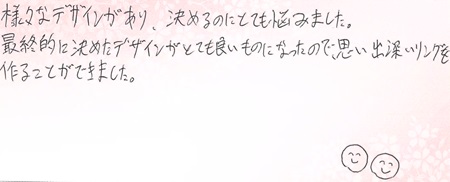 様々なデザインがあり、決めるのにとても悩みました。
最終的に決めたデザインがとても良いものになったので思い出深いリングを
作ることができました。